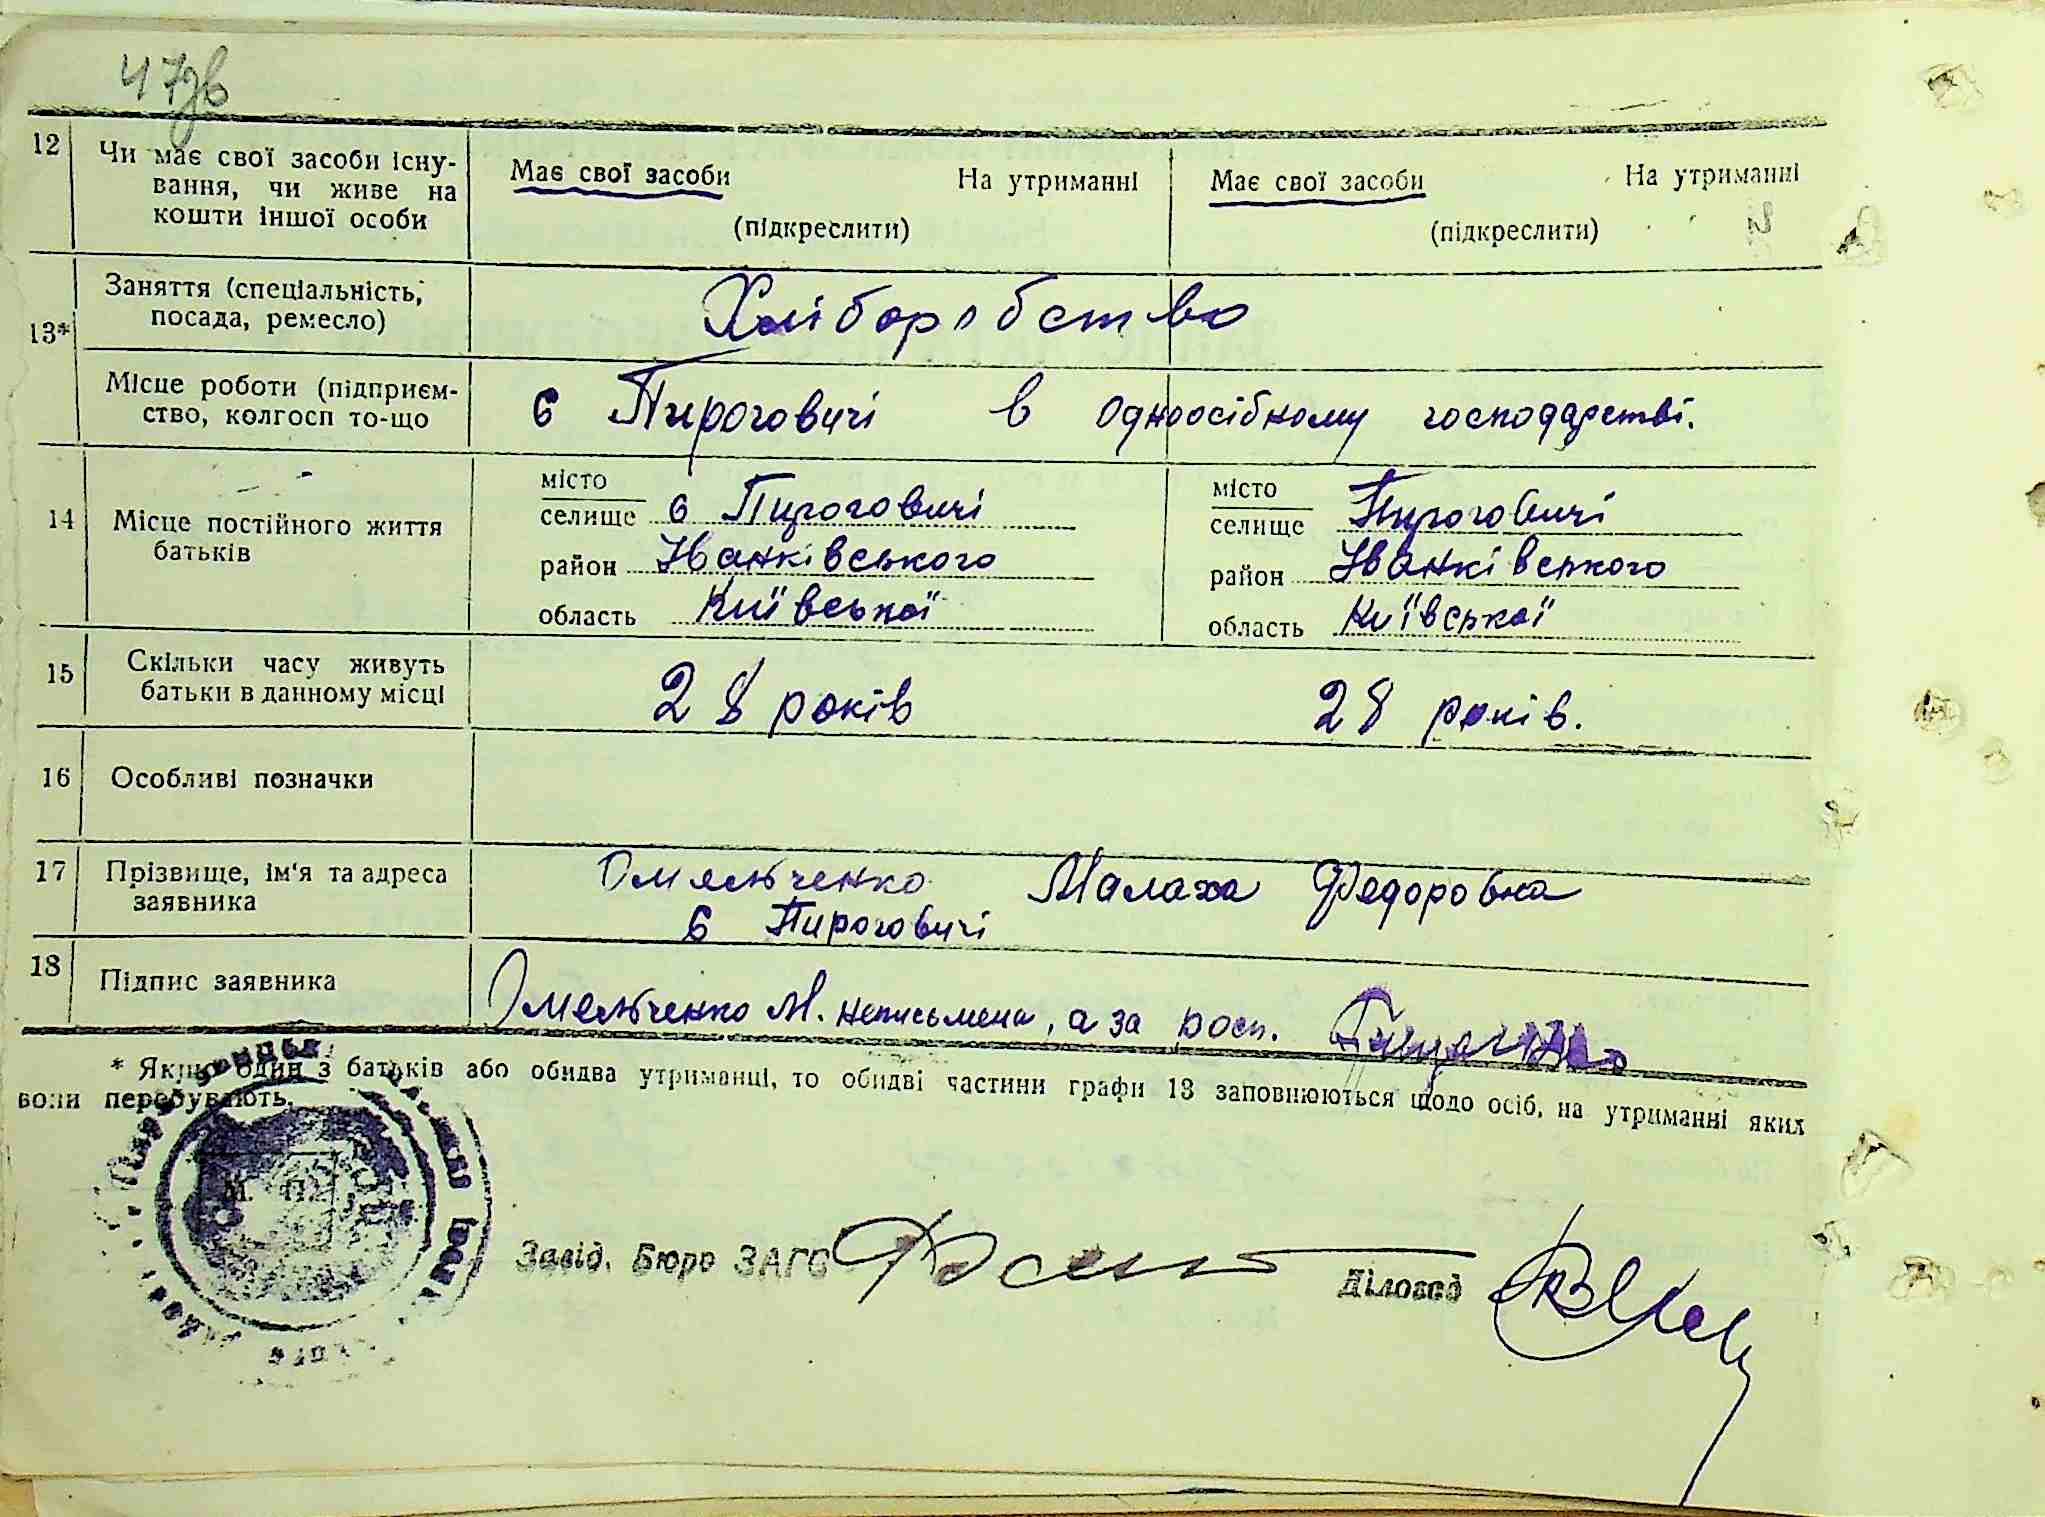 47зв
12
Чи має свої засоби існу-
вання, чи живе на
кошти іншої особи
Має свої засоби На утриманні
(підкреслити)
Має свої засоби На утриманні
(підкреслити)
13*
Заняття (спеціальність,
посада, ремесло)
Хліборобство
Місце роботи (підприєм-
ство, колгосп то-що
с Пироговичі в одноосібному господарстві.
14
Місце постійного життя
батьків
місто
селище с Пироговичі
район Іванківського
область Київської
місто
селище Пироговичі
район Іванківського
область Київської
15
Скільки часу живуть
батьки в данному місці
28 років
28 років.
16
Особливі позначки
17
Прізвище, ім'я та адреса
заявника
Омельченко Малаха Федоровна
с Пироговичі
18
Підпис заявника
Омельченко М. неписьмена, а за росп.
* Якщо один з батьків або обидва утриманці, то обидві частини графи 13 заповнюються щодо осіб, на утриманні яких
вони перебувають.
М. П.
Завід. Бюро ЗАГС
Діловод